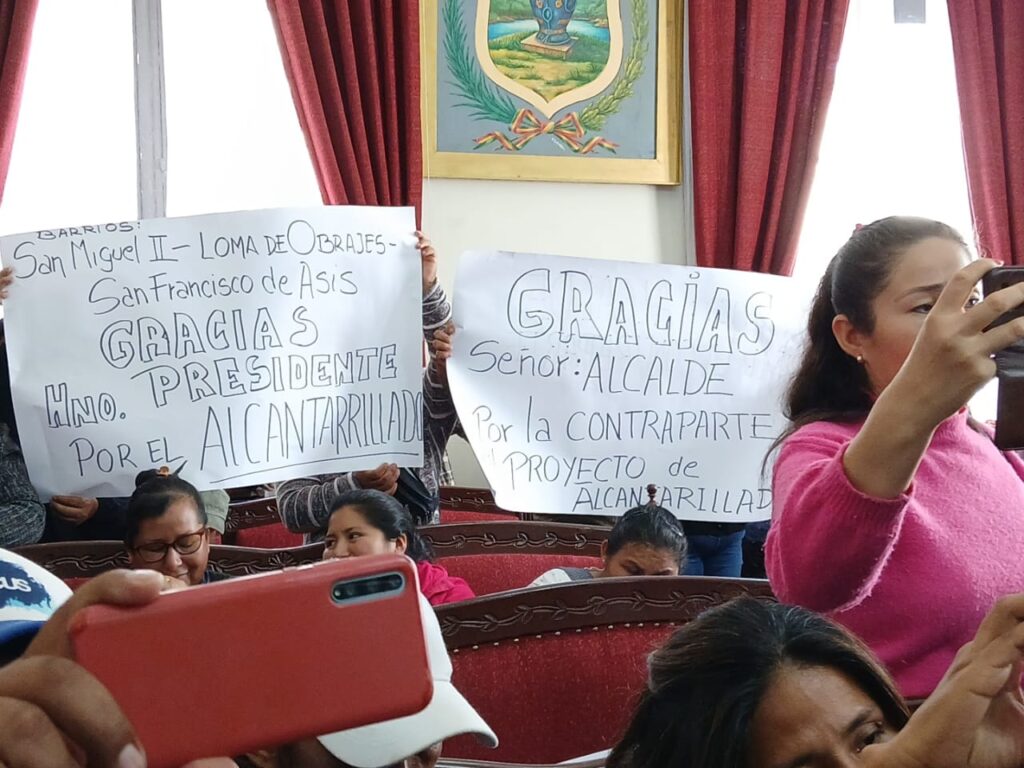 BARRIOS:
San Miguel II - LOMA DE OBRAJES -
San Francisco de Asis
GRACIAS
HNO. PRESIDENTE
POR EL ALCANTARRILLADO
GRACIAS
Señor: ALCALDE
Por la CONTRAPARTE
PROYECTO de
ALCANTARILLAD